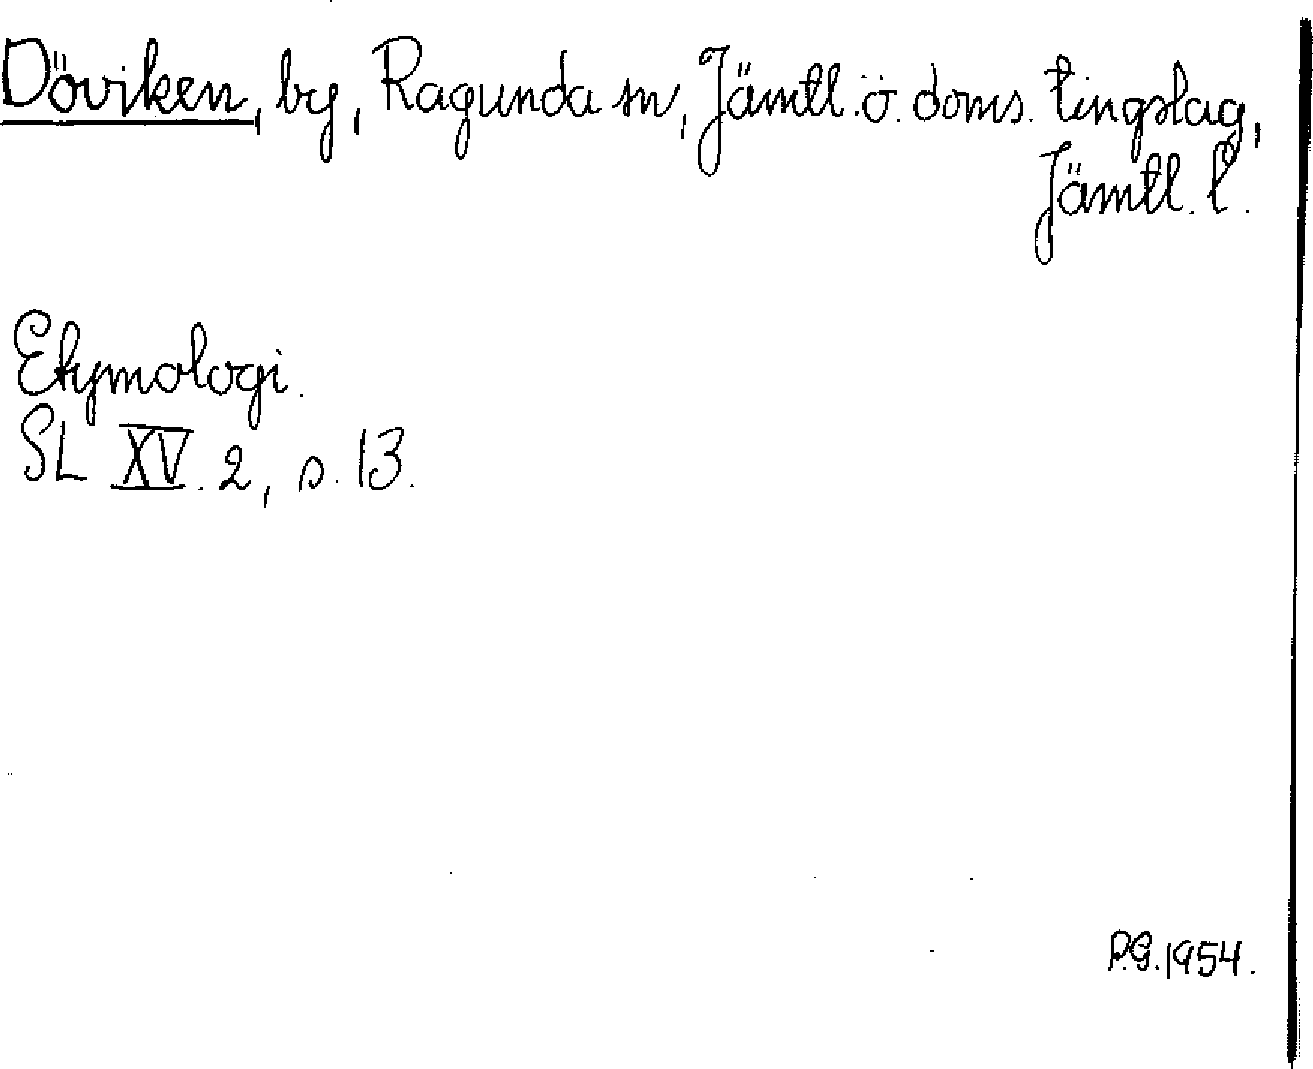 Döviken, by, Ragunda sn, Jämtl. ö. doms. tingslag,
Jämtl. l.
Etymologi.
SL XV. 2, s. 13.
P.G. 1954.